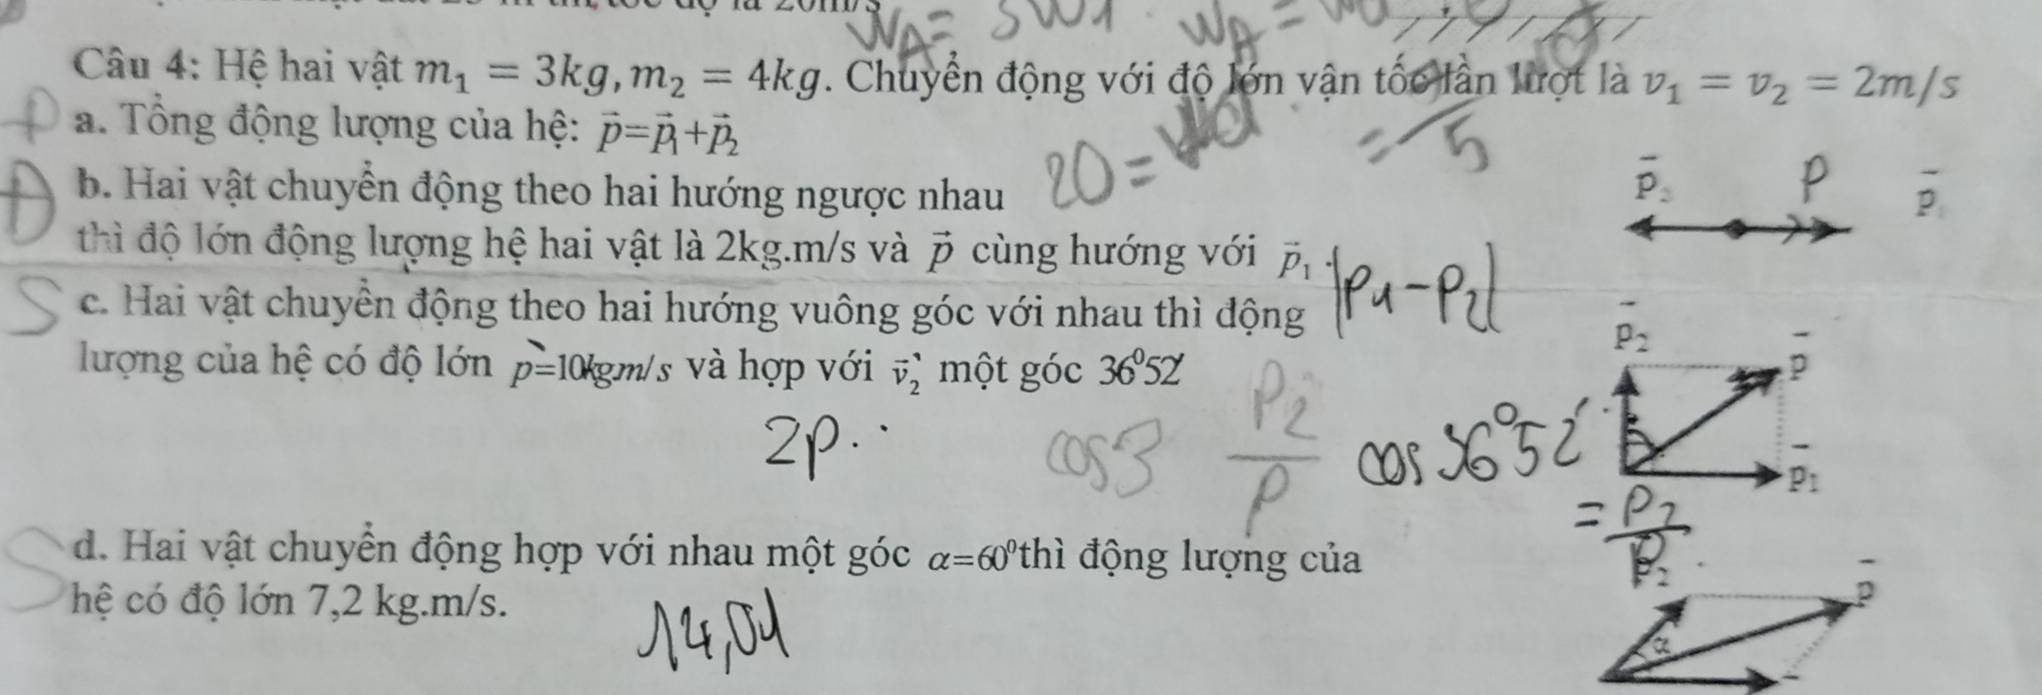 W_A = 5W₁ W_A =
Câu 4: Hệ hai vật m₁ = 3kg, m₂ = 4kg. Chuyển động với độ lớn vận tốc lần lượt là v₁ = v₂ = 2m/s
Đ a. Tổng động lượng của hệ: p⃗=p⃗₁+p⃗₂
20 = Wd = 5
Đ b. Hai vật chuyển động theo hai hướng ngược nhau
thì độ lớn động lượng hệ hai vật là 2kg.m/s và p⃗ cùng hướng với p⃗₁.
p₂ P p₁
|P₁-P₂|
S c. Hai vật chuyển động theo hai hướng vuông góc với nhau thì động
lượng của hệ có độ lớn p=10kgm/s và hợp với v⃗₂ một góc 36⁰52'
p₂ p
p₁
2P.
cos3 P₂/P cos 36⁰52' = P₂/P
S d. Hai vật chuyển động hợp với nhau một góc α=60⁰thì động lượng của
hệ có độ lớn 7,2 kg.m/s.
14,04
p₂ p
α